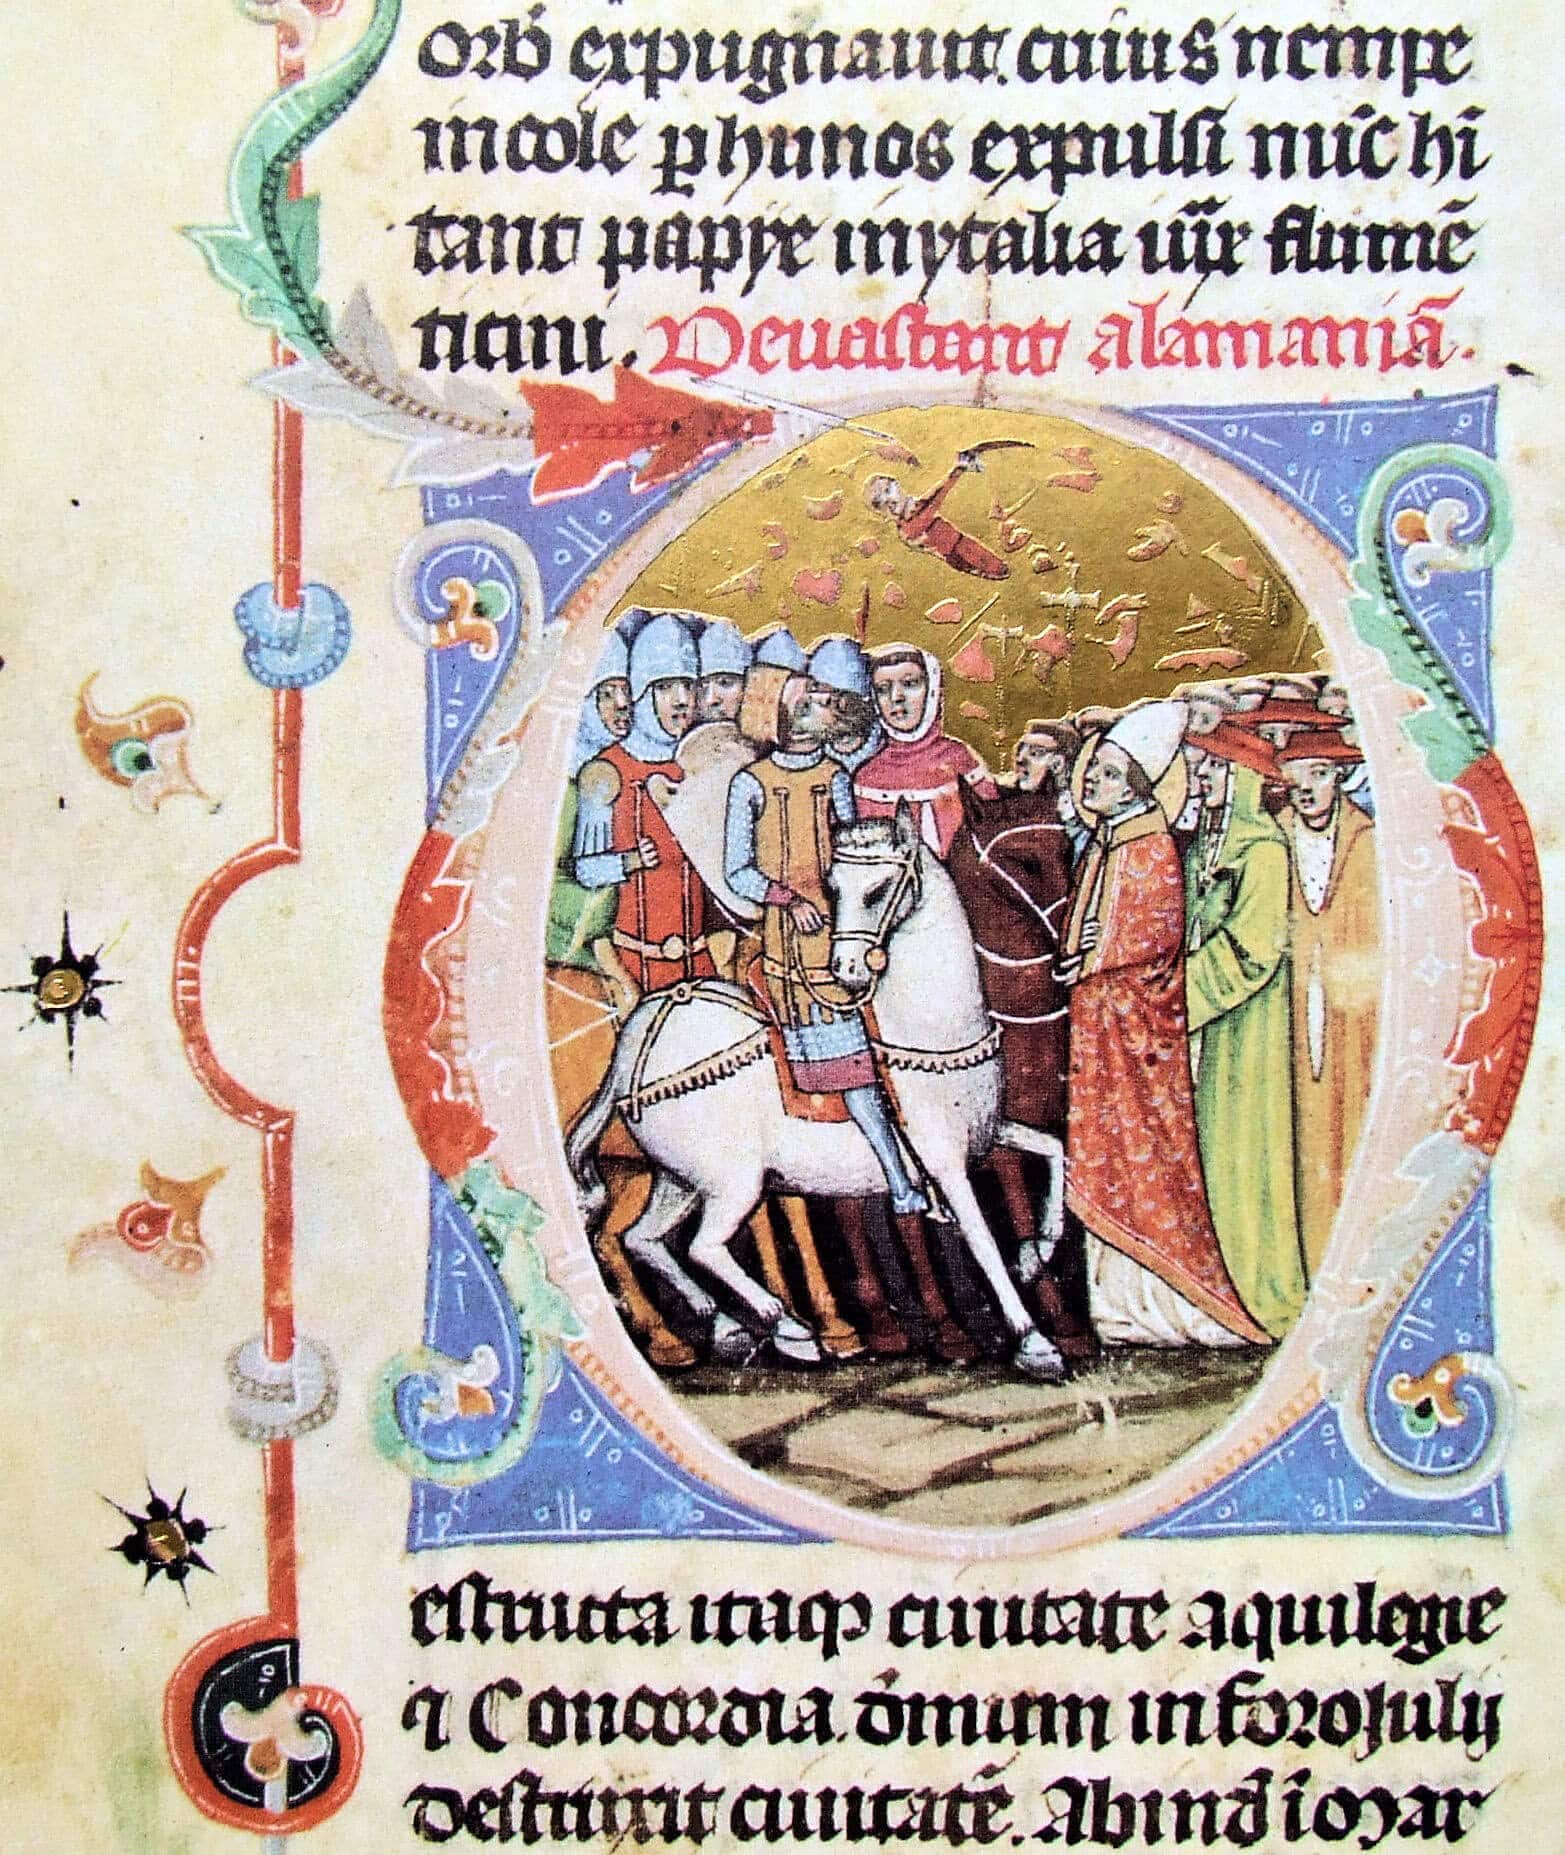 orb̄ expugnauit. cuius nempe
incole ꝑ hunos expulsi nūc hī
tant papye inytalia iuxͣ flumē
ticini. Deuastant alamaniā.
estructa itaqꝫ ciuitate aquilegie
⁊ Concordia. dīnum in foroiulij
destruxit ciuitatē. Abinđ ī mar